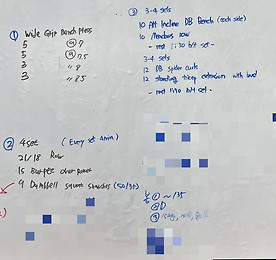 ① Wide Grip Bench Press
5 @7
5 @7.5
3 @8
3 @8.5
② 4 set (Every set 4min)
21/18 Row
15 Burpee over
9 Dumbbell squat snatches (50/35)
③ 3-4 sets
10 Alt Incline DB Bench (each side)
10 Pendlay row
- rest 1:30 b/t set -
3-4 sets
12 DB spider curls
12 standing tricep extension with band
- rest 1:30 b/t set -
① ~/35
②
③